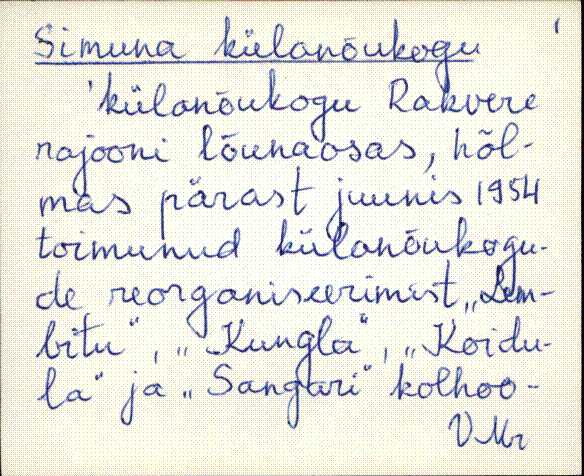 Simuna külanõukogu
'külanõukogu Rakvere
rajooni lõunaosas, hõl-
mas pärast juunis 1954
toimunud külanõukogu-
de reorganiseerimist „Lem-
bitu“, „Kungla“, „Koidu-
la“ ja „Sangari“ kolhoo-